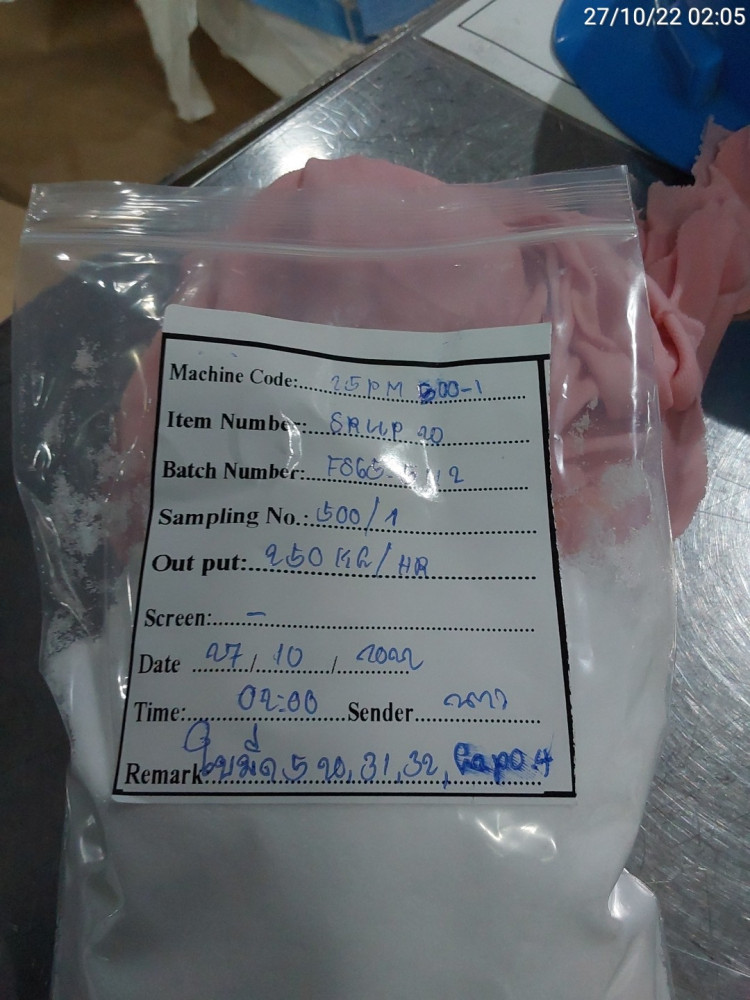 27/10/22 02:05
Machine Code: 25PM 500-1
Item Number: SRUP 20
Batch Number:
Sampling No.: 500/1
Out put: 250 KG/HR
Screen: -
Date 27/10/2022
Time: 02:00 Sender
Remark ใบมีด 5 20, 31, 32,